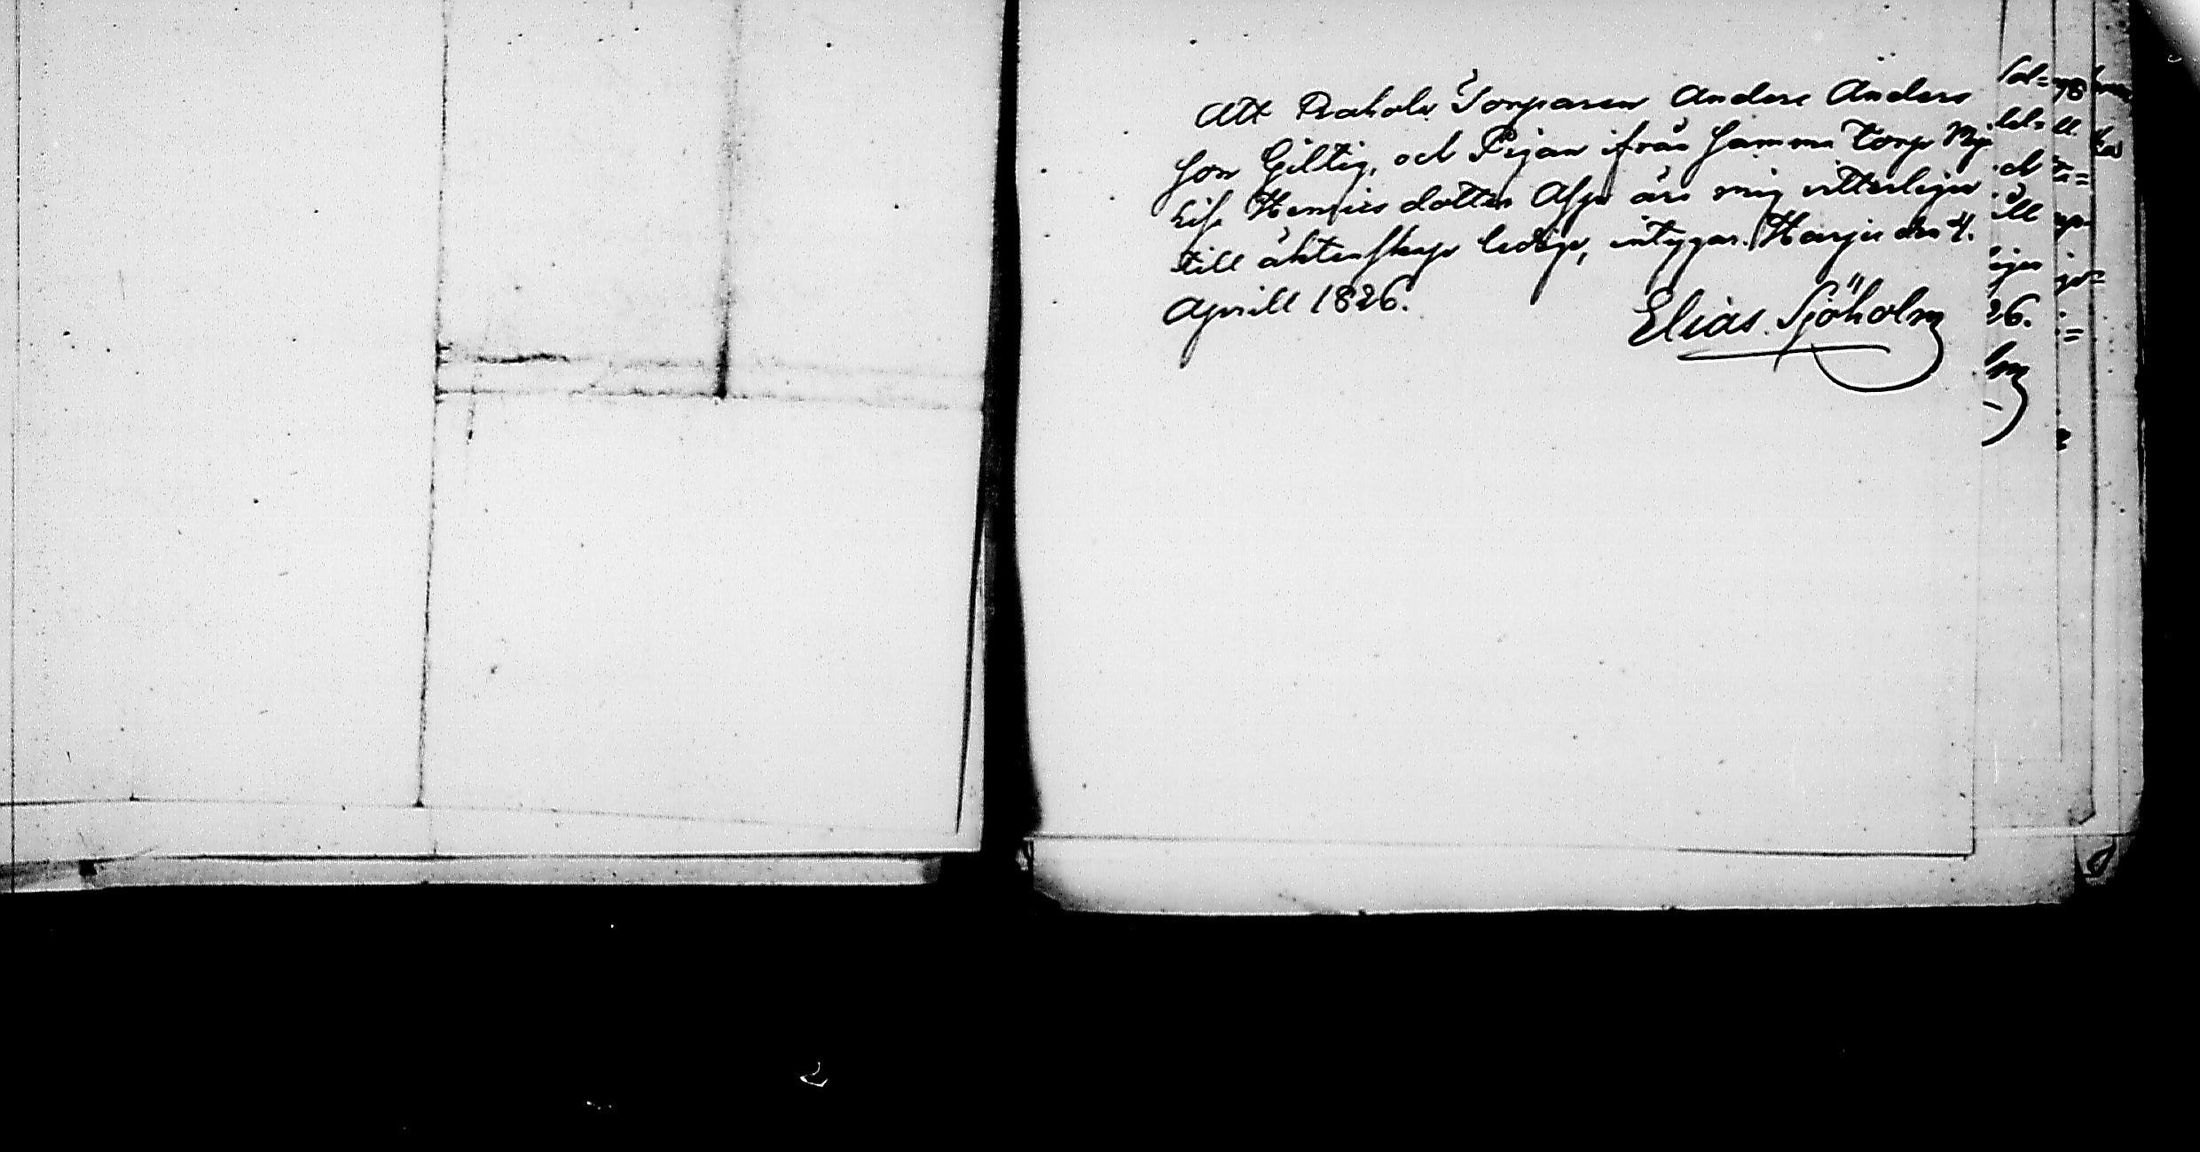 Att Rahola Torparen Anders Anders
son Giltig, och Pigan ifrån samma Torp
Lisa Henrics dotter äro mig vitterligen
till äktenskap ledige, intygar. Harju den 4.
Aprill 1826.
Elias Sjöholm
26.